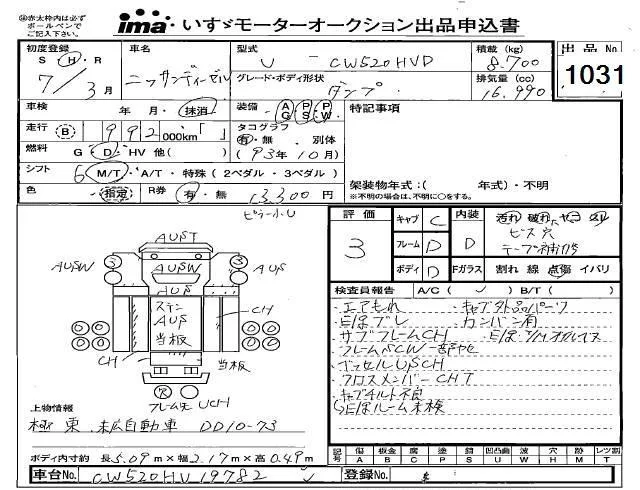 ㊟赤太枠内は必ず
ボールペンで
ご記入下さい。
ima・いすゞモーターオークション出品申込書
初度登録 車名 型式 積載(kg) 出品No
S・H・R ニッサンディーゼル U - CW520HVD 8,700 1031
7/3月 グレード・ボディ形状 ダンプ 排気量(cc) 16,990
車検 年 月・抹消 装備 AC PS PW 特記事項
走行 B 992,000km「 」 タコグラフ
燃料 G・D・HV 他( ) 有・無 別体 (93年10月)
シフト 6 M/T・A/T・特殊(2ペダル・3ペダル)
色 指定 R券 有・無 13,300円 架装物年式:( 年式)・不明
※不明の場合は、不明に○をする。
評価 キャブ C 内装 汚れ 破れ ヤニ スリ
3 フレーム D D ビス穴
テープ補修
ボディ D Fガラス 割れ 線 点傷 イバリ
検査員報告 A/C( ) B/T( )
・エアもれ ・キャブ外品パーツ
・E/gブレ ・カンバン有
・サブフレームCH
・フレームSCW一部ヤセ
・ベッセルUPSCH
・クロスメンバーCHT
・キャブチルト不良
・E/gルーム未検
AUST
AUSW 3 AUSW 3 AUS
AUS
ステン
AUS
当板
CH
CH 当板
フレーム先 UCH
上物情報
極東 DD10-73
ボディ内寸約 長5.09m×巾2.17m×高0.49m
記号 傷 板金 腐 塗 錆 凹凸曲 波 穴 外 レンズ割
A B C P S U W H M T
車台No CW520HV19782 登録No